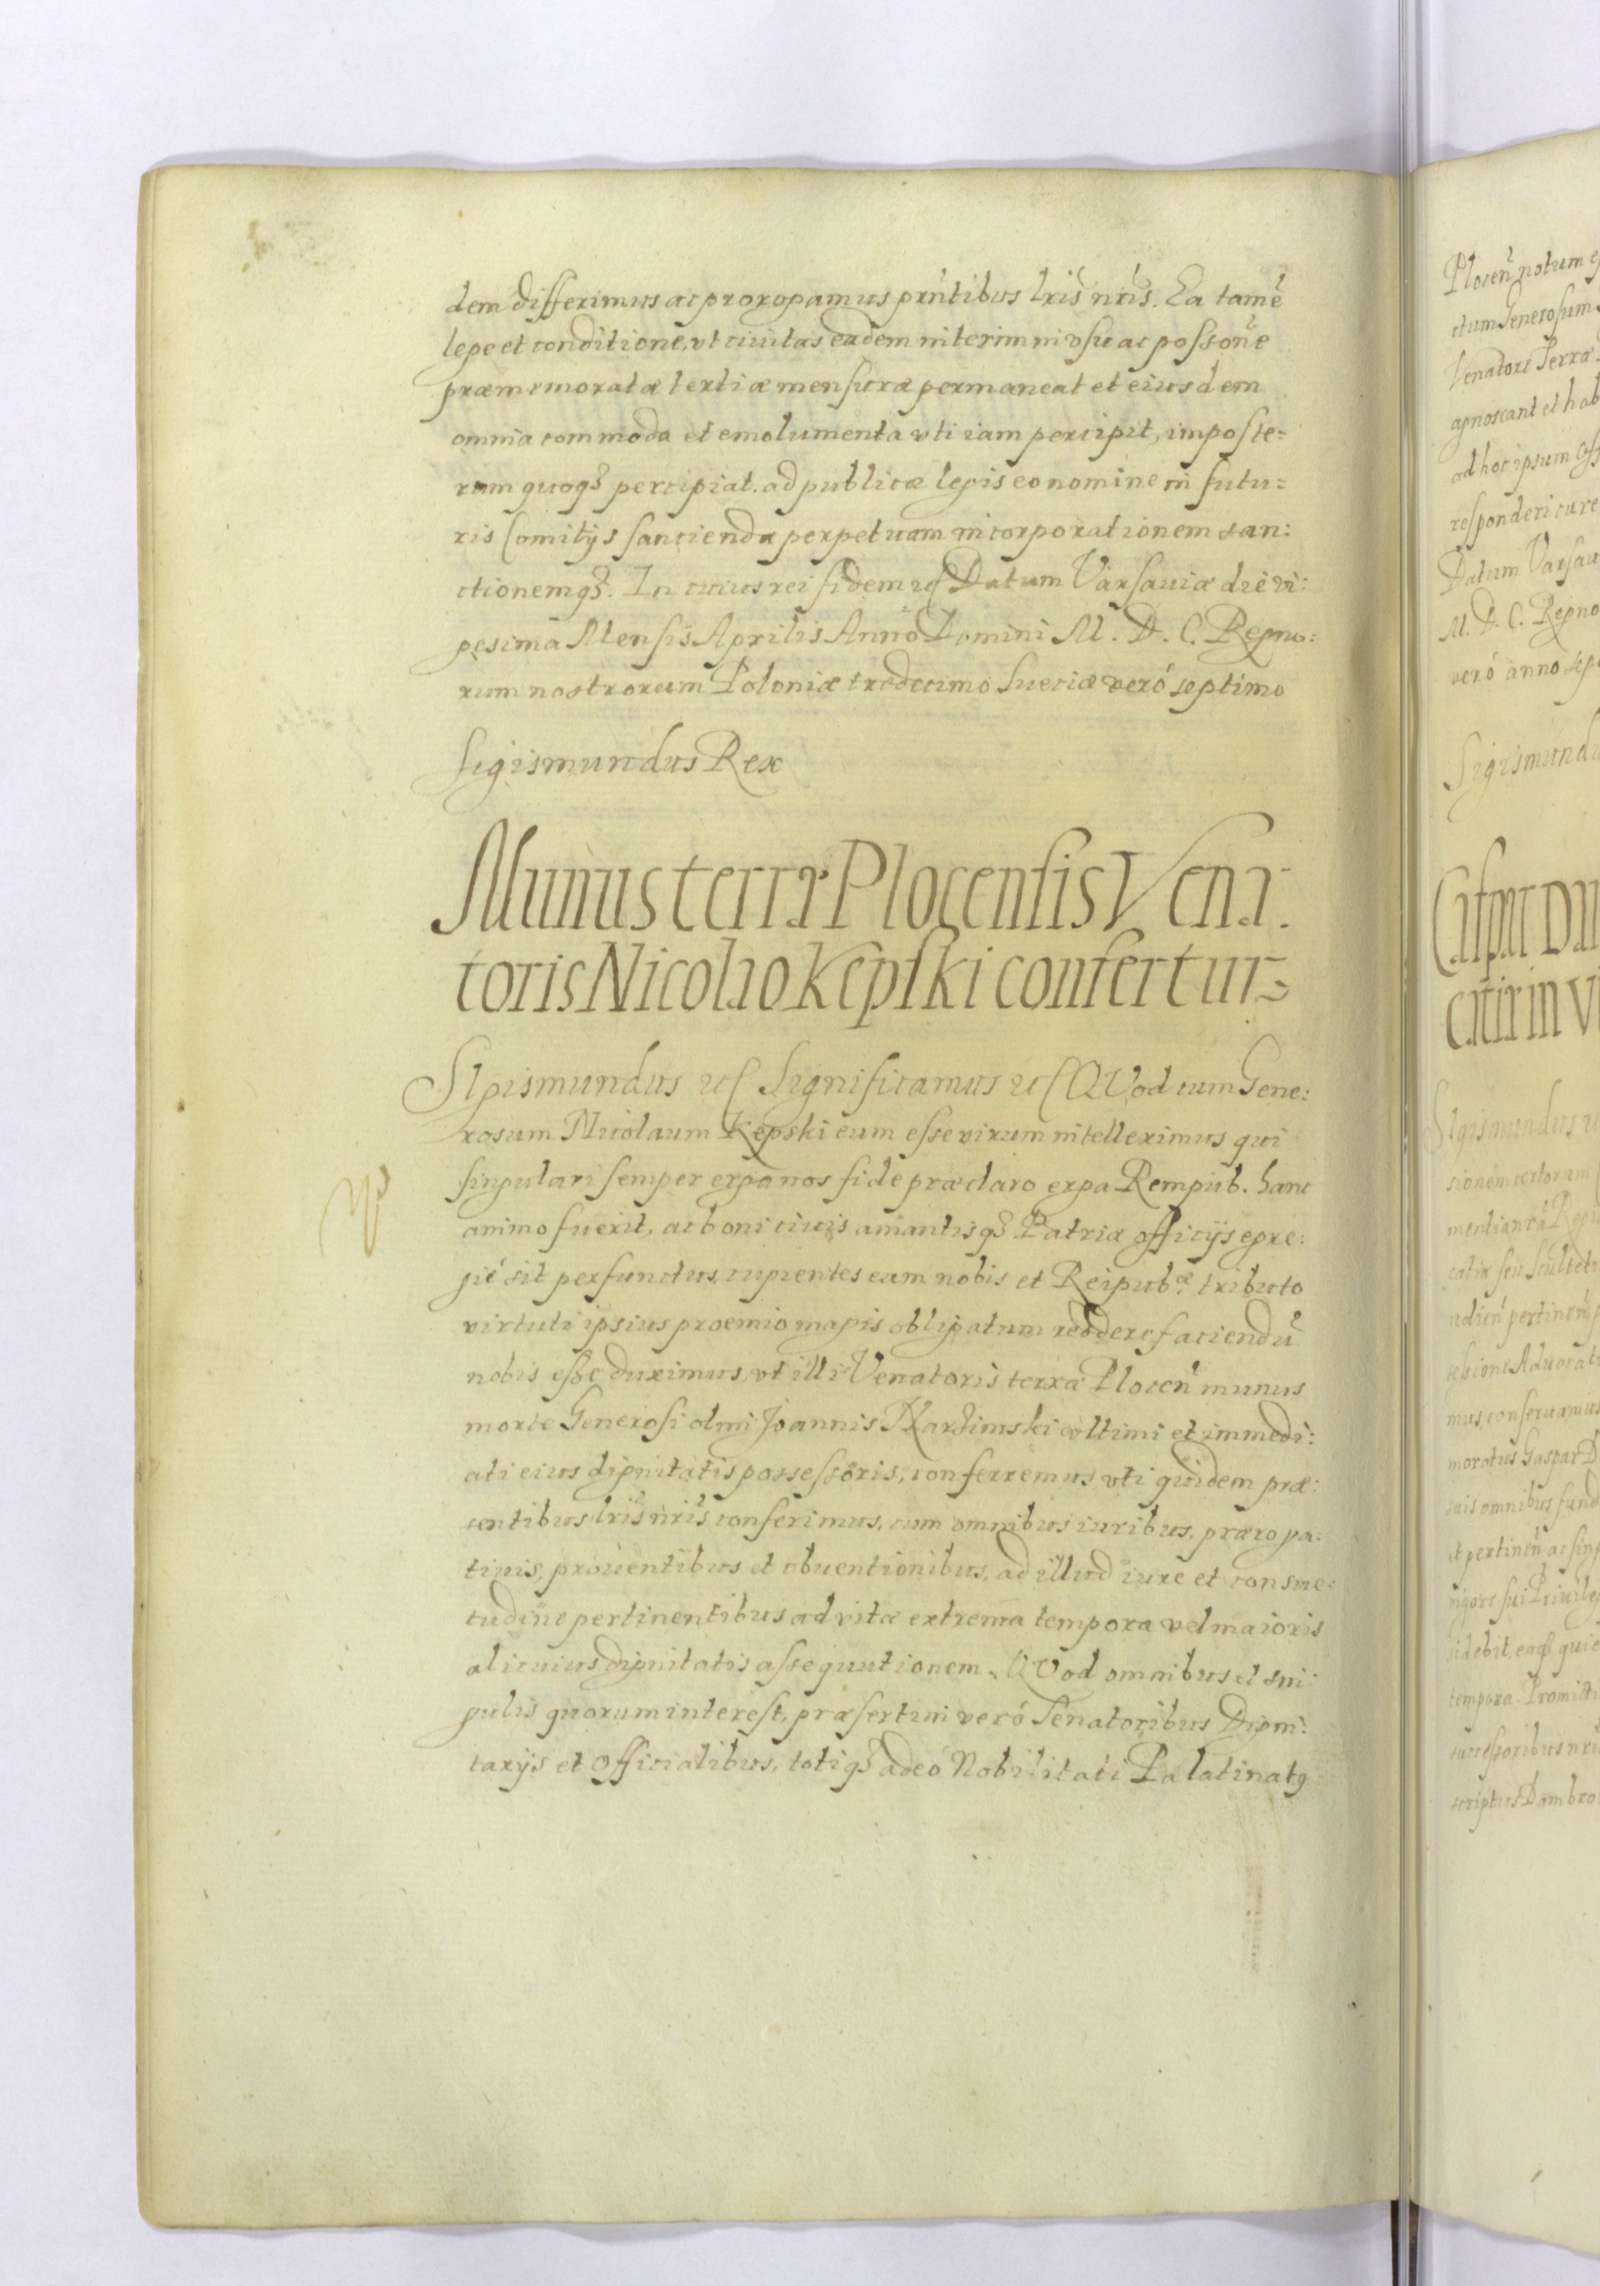 dem differimus ac prorogamus prñtibus lris nris. Ea tamẽ
lege et conditione, vt ciuitas eadem interim in vsu ac possonẽ
præmemoratæ tertiæ mensuræ permaneat et eiusdem
omnia commoda et emolumenta vti iam percipit, imposte=
rum quoqȝ percipiat. ad publicæ legis eo nomine in futu=
ris Comitijs sanciendæ perpetuam incorporationem san:
ctionemqȝ. In cuius rei fidem ꝛc Datum Varsauiæ die vi:
gesima Mensis Aprilis Anno Domini M. D. C. Regno:
rum nostrorum Poloniæ tredecimo Sueciæ veró septimo
Sigismundus Rex
Munus terræ Plocensis Vena:
toris Nicolao Kępski confertur
Sigismundus ꝛc Significamus ꝛc QVod cum Gene:
rosum Nicolaum Kępski eum esse virum intellexerimus qui
singulari semper erga nos fide præclaro erga Rempub. hanc
animo fuerit, ac boni ciuis amantisqȝ Patriæ officijs egre:
gié sit perfunctus, cupientes eum nobis et Reipubᵉ tributo
virtuti ipsius proemio magis obligatum reddere faciendũ
nobis esse duximus, vt illi Venatoris terræ Plocen̄ munus
morte Generosi olim Joannis Narzimski vltimi et immedi:
ati eius dignitatis possessoris, conferremus, vti quidem præ:
sentibus lris nris conferimus, cum omnibus iuribus, præroga:
tiuis, prouentibus et obuentionibus, ad illud iure et consue:
tudine pertinentibus ad vitæ extrema tempora vel maioris
alicuius dignitatis assequutionem. QVod omnibus et sin:
gulis quorum interest, præsertim veró Senatoribus Digni:
tarijs et Officialibus, totiqȝ adeó Nobilitati Palatinatꝰ
Plocen̄ notum
ctum Generosum
Venatore Terræ
agnoscant et hab
ad hoc ipsum
responderi cure
Datum Varsau
M. D. C. Regno
veró anno sep
Sigismundu
Sigismundus
tempora. Promitti
scriptus Dambro